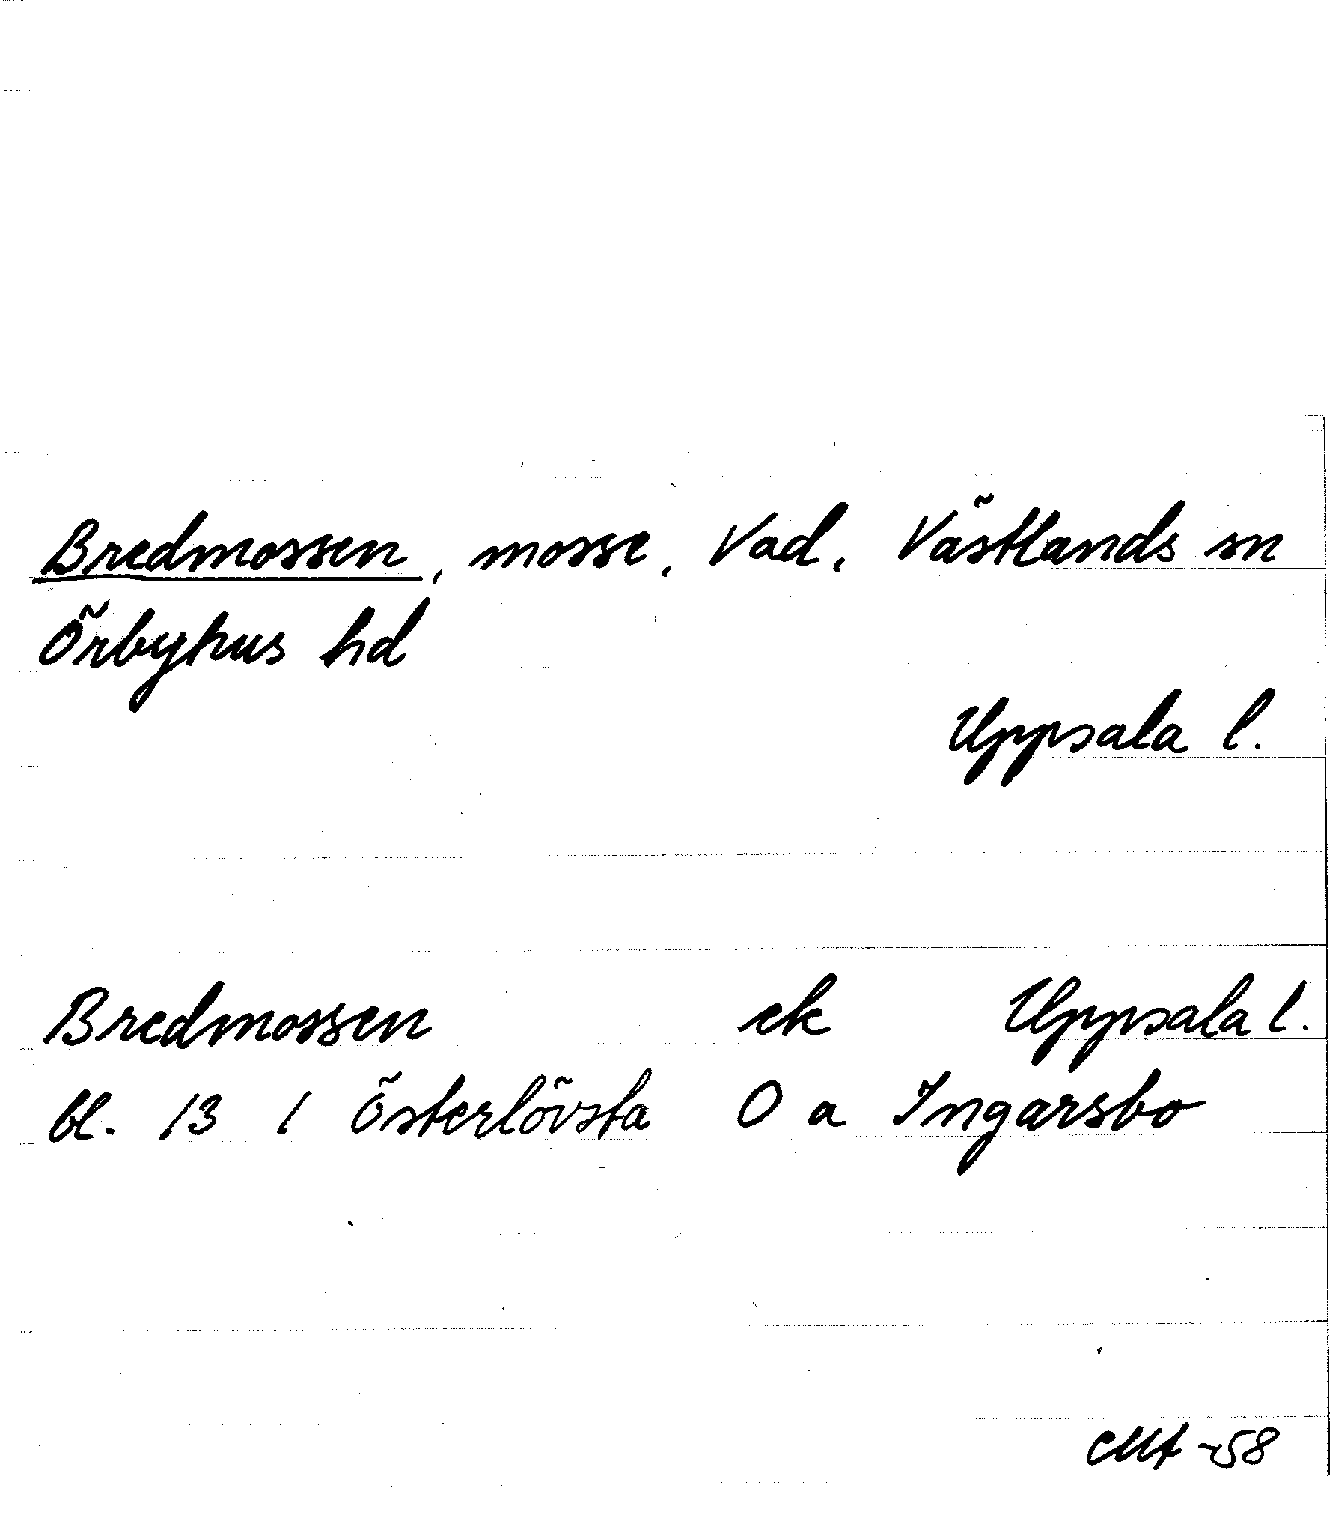 Bredmossen, mosse, Vad, Västlands sn
Örbyhus hd
Uppsala l.
Bredmossen ek Uppsala l.
bl. 13 1 Österlövsta O a Ingarsbo
-58